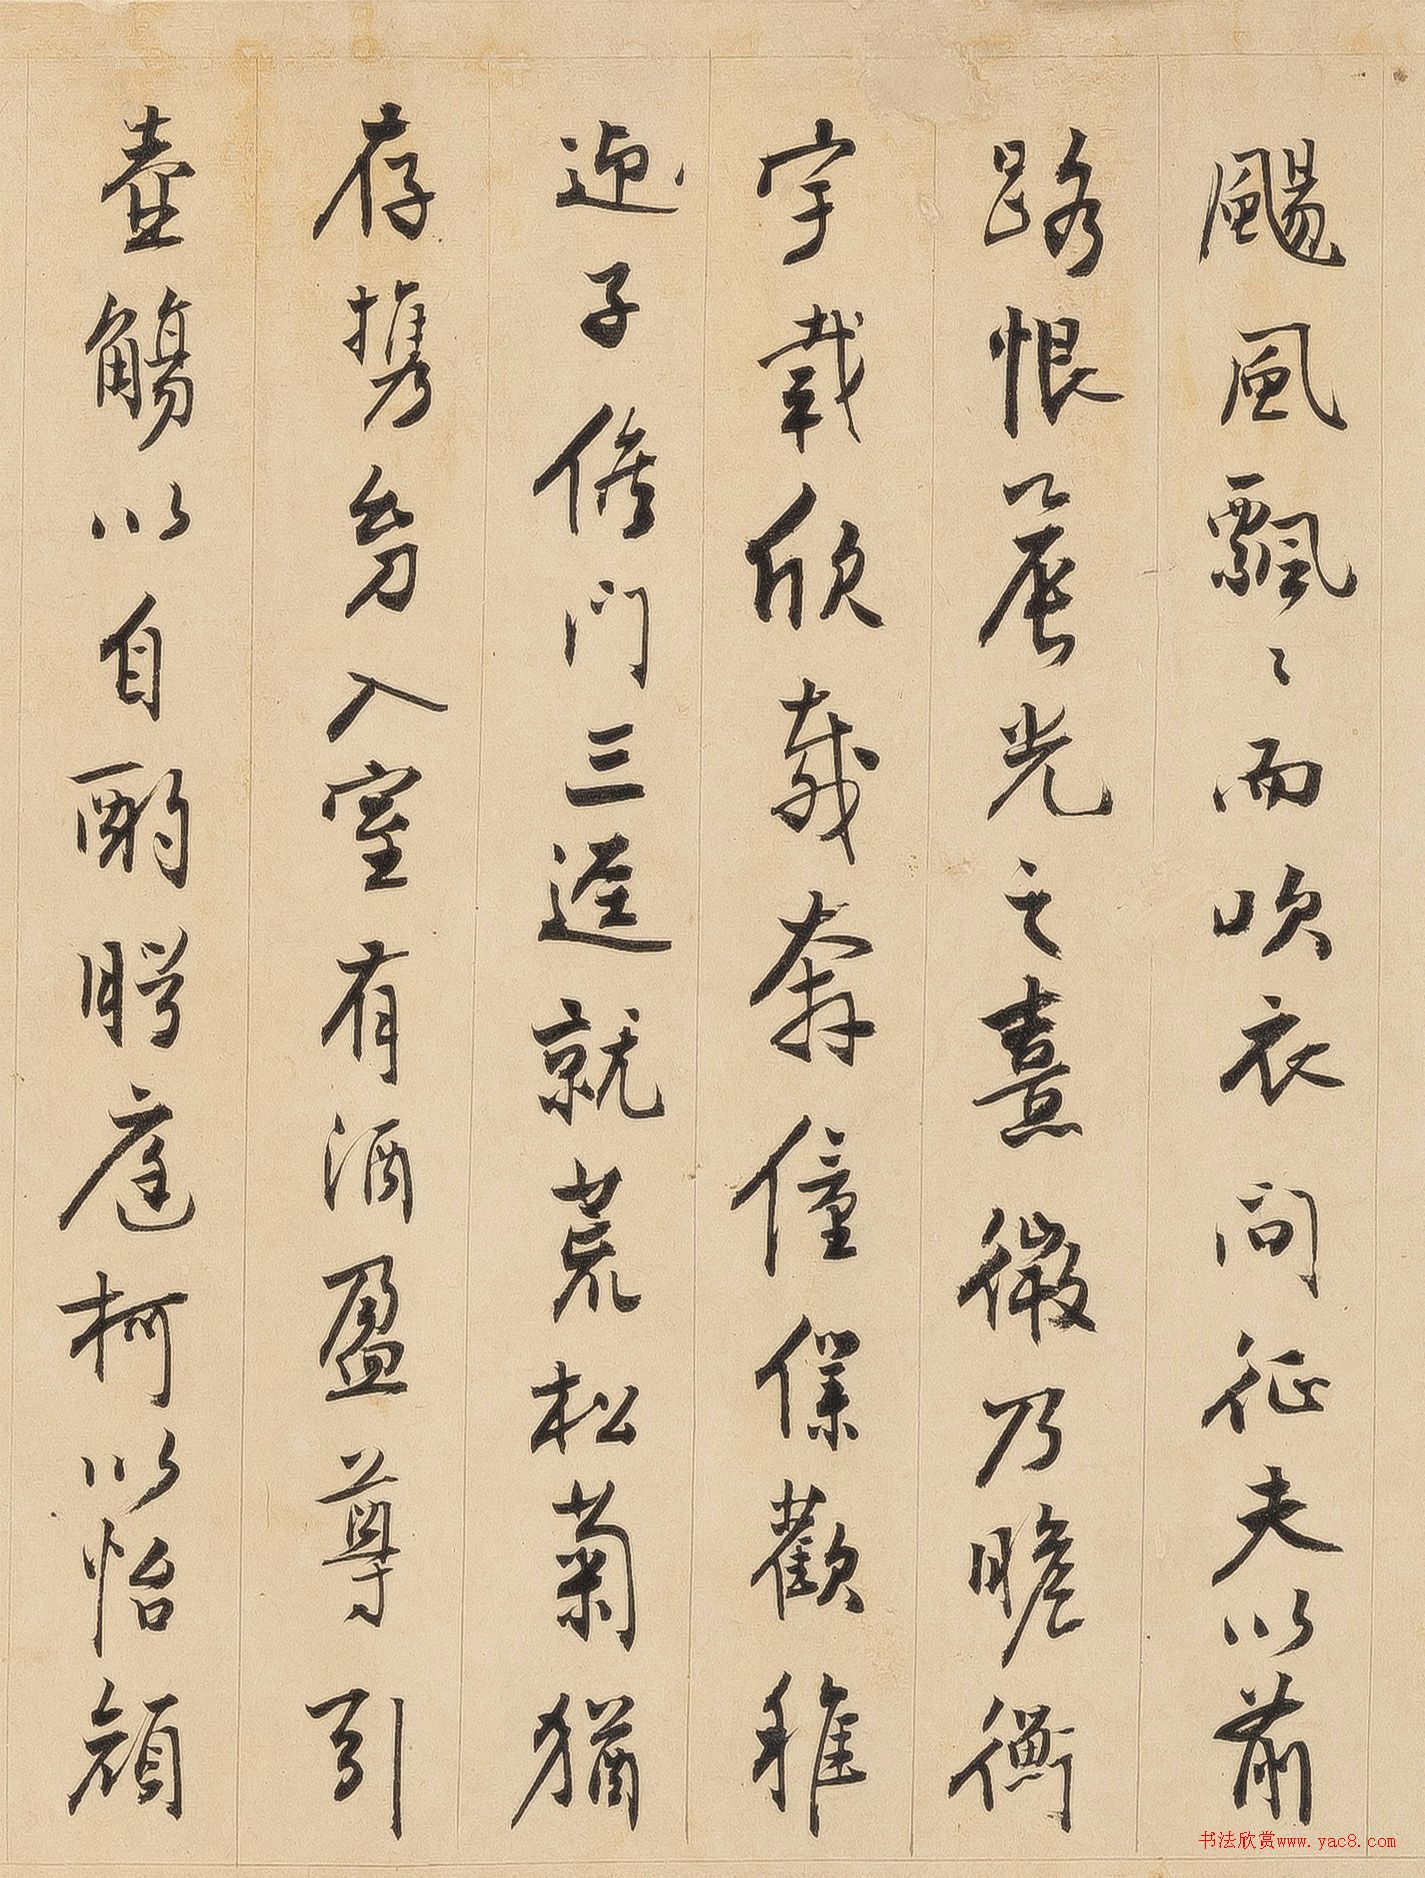 颺風飄〻而吹衣問征夫以前
路恨晨光之熹微乃瞻衡
宇載欣載奔僮僕歡稚
迎子候門三逕就荒松菊猶
存携幼入室有酒盈尊引
壺觴以自酌眄庭柯以怡顔
书法欣赏www.yac8.com